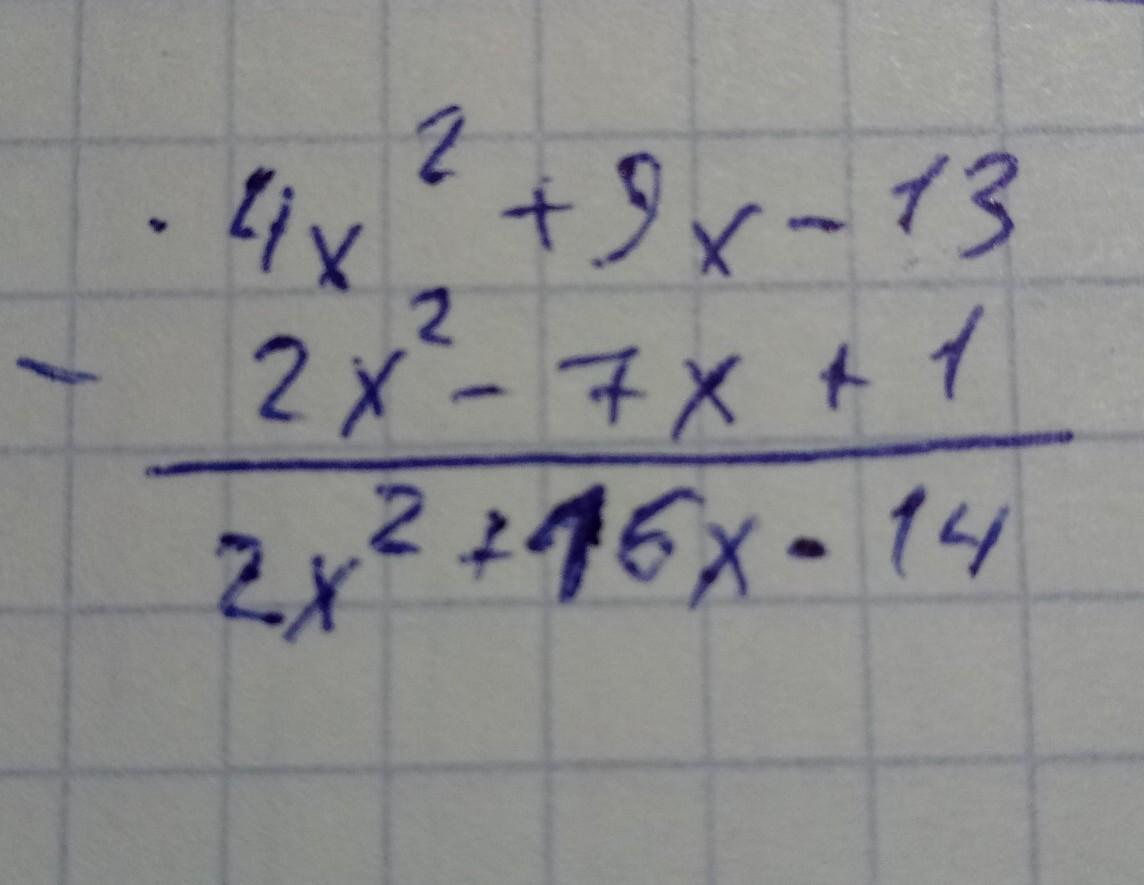 · 4x² + 9x - 13
- 2x² - 7x + 1
2x² + 16x - 14